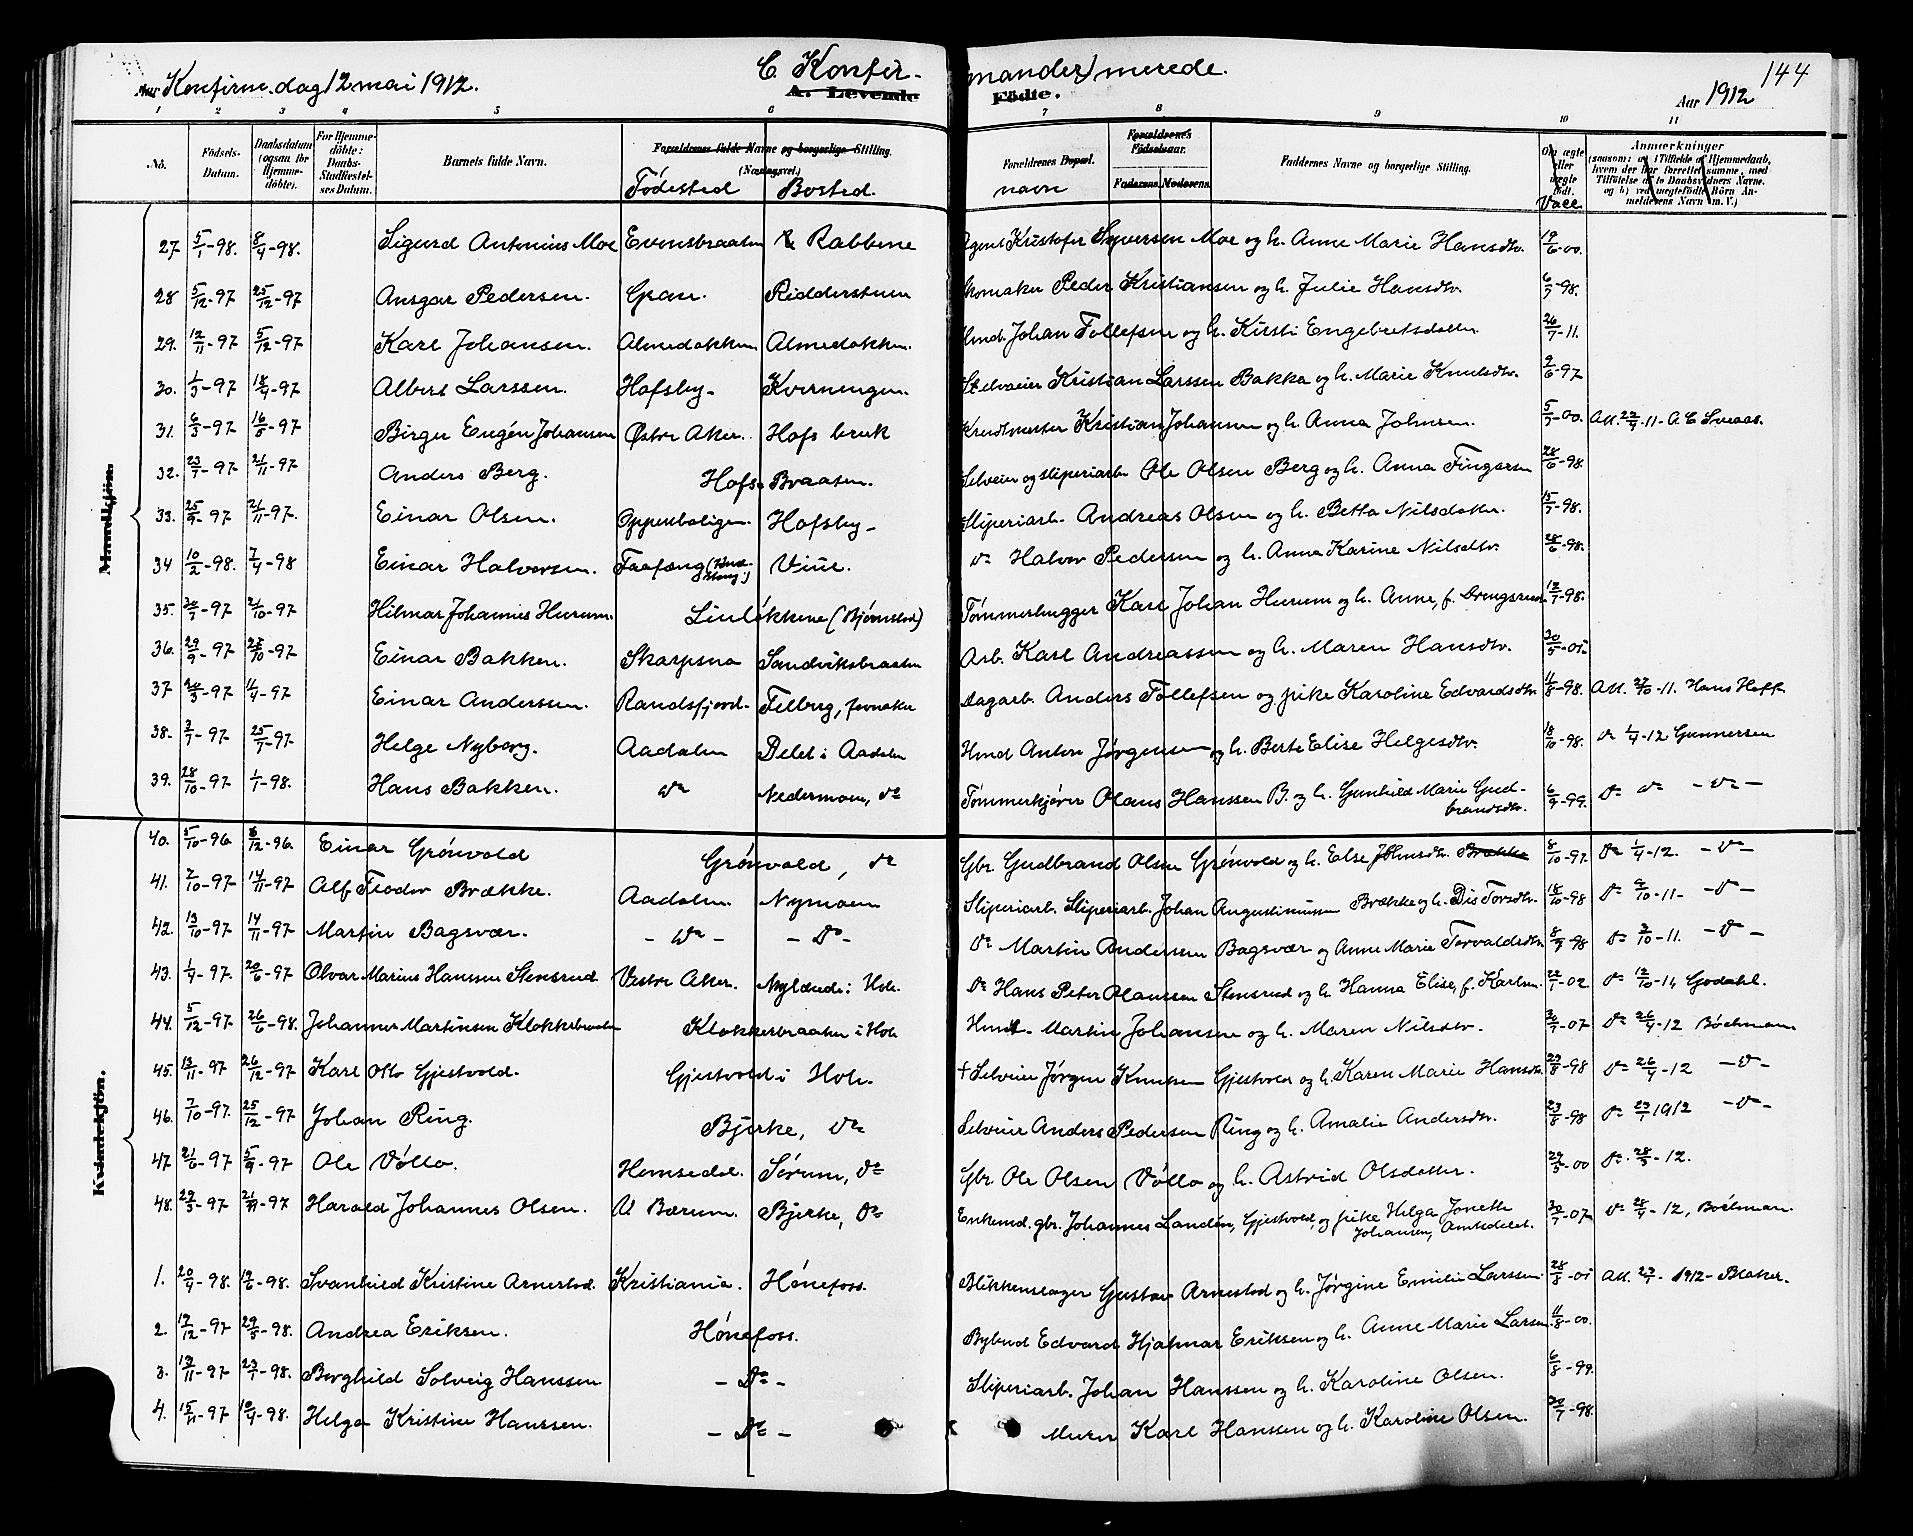 Aar Konfirm.dag 12 mai 1912.
C. Konfir- mander) merede.
144
A. Levende Födte.
Aar 1912
1 2 3 4 5 6 7 8 9 10 11
No. Födsels-Datum. Daabsdatum (ogsaa for Hjemmedöbte). For Hjemmedöbte: Daabs-Stadfæstelses Datum. Barnets fulde Navn. Forældrenes fulde Navne og borgerlige Stilling. (Næringsvei.) Födested Bosted. Forældrenes Bopæl. navne Forældrenes Födselsaar. Faderens. Moderens. Faddernes Navne og borgerlige Stilling. Om ægte eller uægte födt. Vacc. Anmærkninger
Mandkjön.
27. 5/1-98. 8/4-98. Sigurd Antonius Moe Evensbraaten Rabbene Agent Kristofer Syversen Moe og h. Anne Marie Hansdtr. 19/6-00.
28 5/12-97 25/12-97 Ansgar Pedersen. Gran. Ridderstuen Skomaker Peder Kristiansen og h. Julie Hansdtr. 6/7-98.
29. 12/11-97 5/12-97 Karl Johansen. Almedakken Almedakken. Hmd. Johan Tollefsen og h. Kirsti Engebretsdatter 26/7-11.
30. 1/3-97 18/4-97 Albert Larssen. Hofsby- Kverningen. Selveier Kristian Larssen Bakka og h. Marie Knutsdtr. 9/6-97
31. 6/3-97 16/5-97 Birger Eugén Johansen Østre Aker. Hofs bruk Kristian Johansen og h. Anna Johnsen. 5/7-00. Att. 22/9-11- A C Sveaas.
32. 23/7-97 21/11-97 Anders Berg. Hofs. Braaten. Selveier og sliperiarb. Ole Olsen Berg og h. Anna Fingersen 28/6-98.
33. 25/9-97 21/11-97. Einar Olsen. Oppenboligen. Hofsby- Sliperiarb. Andreas Olsen og h. Betta Nilsdatter. 15/7-98.
34 10/2-98. 7/4-98 Einar Halvorsen. Faafæng Viul. do Halvor Pedersen og h. Anna Karine Nilsdtr. 28/6-98.
35. 30/7-97 21/10-97 Hilmar Johannes Hurum. Linløkkene (Bjørnstad) Tømmerhugger Karl Johan Hurum og h. Anne, f. Drengsrud. 12/7-98.
36. 29/9-97 28/10-97 Einar Bakken. Skarpsna Sandviksbraaten Arb. Karl Andreassen og h. Maren Hansdtr. 30/5-05
37 20/3-97 11/4-97 Einar Andersen. Randsfjord- Felberg, Dagarb. Anders Tollefsen og pike Karoline Edvardsdtr. 11/8-98. Att. 27/10-11. Hans Hoff.
38. 3/7-97 25/7-97. Helge Nyborg. Aadalen Delet i Aadalen Hmd Anton Jørgensen og h. Berte Elise Helgesdtr. 18/10-98. do 1/4-12 Gunnersen
39. 28/10-97 1/1-98. Hans Bakken. do Nedermoen, do Tømmerkjører Olaus Hanssen B. og h. Gunhild Marie Gudbrandsdtr. 6/9-99. do do - do -
Kvindekjön.
40. 5/10-96. 8/12-96. Einar Grönvold Grönvold, do Gbr. Gudbrand Olsen Grönvold og h. Else Johnsdtr. Brække 8/10-97. do 1/4-12. - do -
41. 2/10-97. 14/11-97 Alf Teodor Brække. Aadalen Nymoen Sliperiarb. Sliperiarb. Johan Augustinussen Brække og h. Dis Torsdtr. 18/10-98 do 9/10-11- - do -
42. 13/10-97 14/11-97 Martin Bagsvær. - do - - do - do Martin Andersen Bagsvær og Anne Marie Torvaldsdtr. 8/9-98 do 3/10-11. - do -
43. 1/4-97. 20/6-97 Olvar Marius Hansen Stensrud. Vestre Aker. Nylænde i Hole. do Hans Peter Olaussen Stensrud og h. Hanna Elise, f. Karlsen. 22/7-02 do 12/10-11, Godahl.
44. 5/12-97 26/6-98. Johannes Martinsen Klokkerbraaten Klokkerbraaten i Hole Hmd. Martin Johansen og h. Maren Nilsdtr. 30/7-07 do 26/4-12 Bödtman
45. 13/11-97 26/12-97 Karl Otto Gjestvold. Gjestvold i Hole. † Selveier Jørgen Knutsen Gjestvold og h. Karen Marie Hansdtr. 23/8-98 do 26/4-12 - do -
46. 7/10-97. 25/12-97 Johan Ring. Bjerke, do Selveier Anders Pedersen Ring og h. Amalie Andersdtr. 23/8-98 do 23/1 1912 - do -
47. 21/6-97 5/9-97 Ole Völlo. Hemsedal. Sørum, do Gbr. Ole Olsen Völlo og h. Astrid Olsdatter. 29/5-00 do 28/3-12.
48. 29/5-97 21/11-97 Harald Johannes Olsen. V Bærum. Bjerke, do Enkemd. gbr. Johannes Landén, Gjestvold, og pike Helga Jonette Johansen, Amtedelet. 30/7-07 do 28/4-12, Bödtman.
1. 20/4-98. 19/6-98. Svanhild Kristine Arnestad. Kristiania. Hønefoss. Blikkenslager Gustav Arnestad og h. Jørgine Emilie Larssen. 28/8-05 Att. 23/1- 1912- Blaker.
2. 17/12-97 29/5-98. Andrea Eriksen. Hønefoss. Bybud Edvard Hjalmar Eriksen og h. Anne Marie Larsen. 11/8-00.
3. 13/11-97 23/1-98. Borghild Solveig Hanssen - do - Sliperiarb. Johan Hanssen og h. Karoline Olsen. 6/8-99.
4. 15/11-97 10/4-98. Helga Kristine Hanssen. - do - Murer Karl Hanssen og h. Karoline Olsen. 22/7-98.